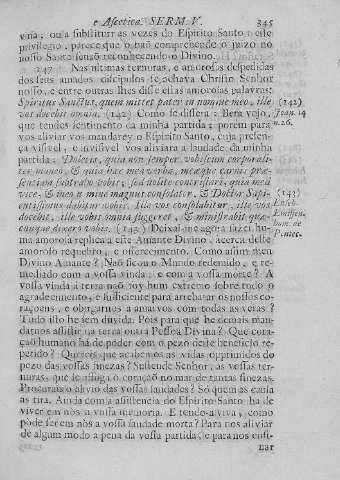 e Ascetica. SERM. V. 345
veña, ou a substituir as vezes do Espirito Santo: este
privilegio, parece que o naõ comprehende o juizo no
nosso Santo senaõ reconhecendo-o Divino.
247 Nas ultimas ternuras, e amorosas despedidas
dos seus amados discipulos se achava Christo Senhor
nosso, e entre outras lhes disse estas amorosas palavras:
Spiritus Sanctus, quem mittet pater in nomine meo, ille
vos docebit omnia. (142) Como se dissera: Bem vejo,
que tendes sentimento da minha partida; porèm para
vos aliviar vos mandarey o Espirito Santo, cuja presen-
ça visivel, e invisivel vos aliviará a saudade da minha
partida: Doletis, quia non semper vobiscum corporali-
ter maneo, & quia hæc me verba, meæque carnis præ-
sentiam subtraho vobis; sed nolite contristari, quia mea
vice, & meo nomine magnus consolator, & Doctor Sapi-
entissimus dabitur vobis. Illa vos consolabitur, ille vos
docebit, ille vobis omnia suggeret, & ministrabit quæ-
cunque dixero vobis. (143) Deixai-me agora fazer hu-
ma amorosa replica a este Amante Divino, acerca deste
amoroso requebro, e offerecimento. Como assim meu
Divino Amante? Naõ ficou o Mundo redemido, e re-
mediado com a vossa vinda: e com a vossa morte? A
vossa vinda á terra naõ foy hum extremo sobre todo o
agradecimento, e sufficiente para arrebatar os nossos co-
raçoens, e obrigarnos a amarvos com todas as veras?
Tudo isso he sem duvida. Pois para que he demais man-
darnos assistir na terra outra Pessoa Divina? Que cora-
çaõ humano há de poder com o pezo deste beneficio re-
petido? Quereis que acabem os as vidas opprimidos do
pezo das vossas finezas? Suspende Senhor, as vossas ter-
nuras, que se afoga o coraçaõ no mar de tantas finezas.
Procurais o alivio das vossas saudades? Só quem as causa
as tira. Ainda com a assistencia do Espirito Santo ha de
viver em nòs a vossa memoria. E tendo-a viva, como
póde serem nòs a vossa saudade morta? Para nos aliviar
de algum modo a pena da vossa partida, e para nos ensi-
nar
(142)
Joan. 14
n. 26.
(143)
Euseb.
Emissen.
hom. de
Pentec.